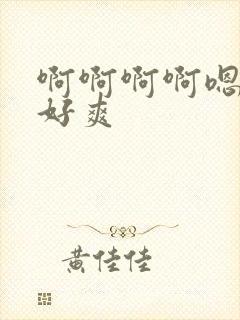 啊啊啊啊嗯
好爽
黄佳佳